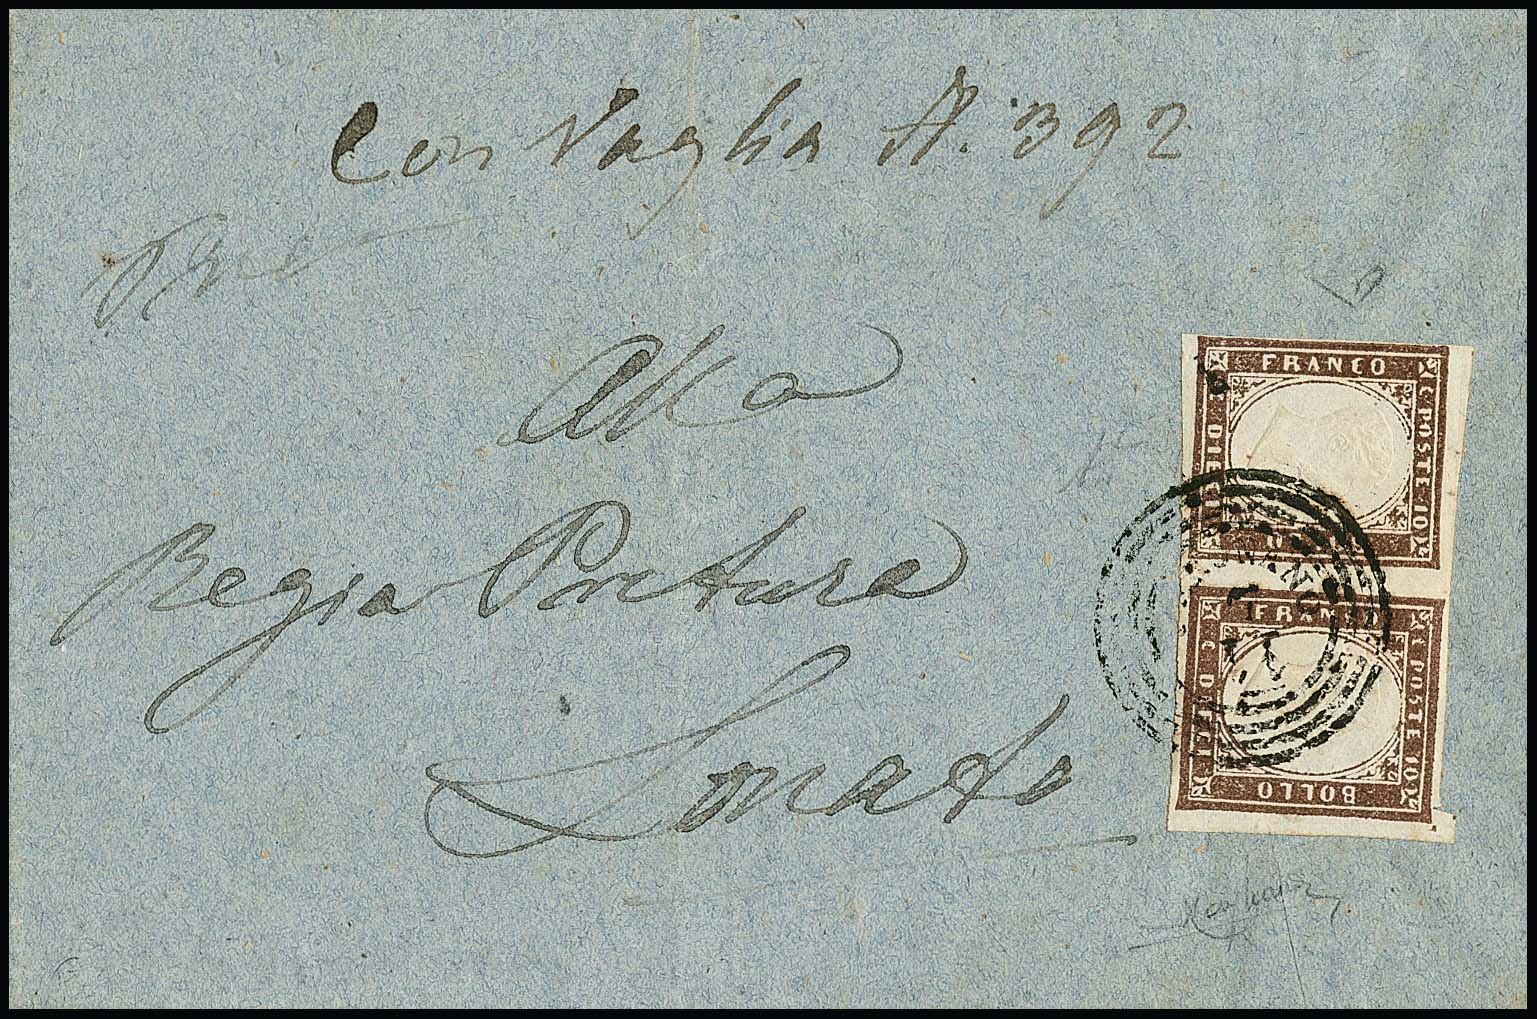 Con Vaglia N. 392
Alla
Regia Pretura
Lonato
FRANCO
C. POSTE 10
C. DIECI
FRANCO
C. POSTE 10
C. DIECI
BOLLO